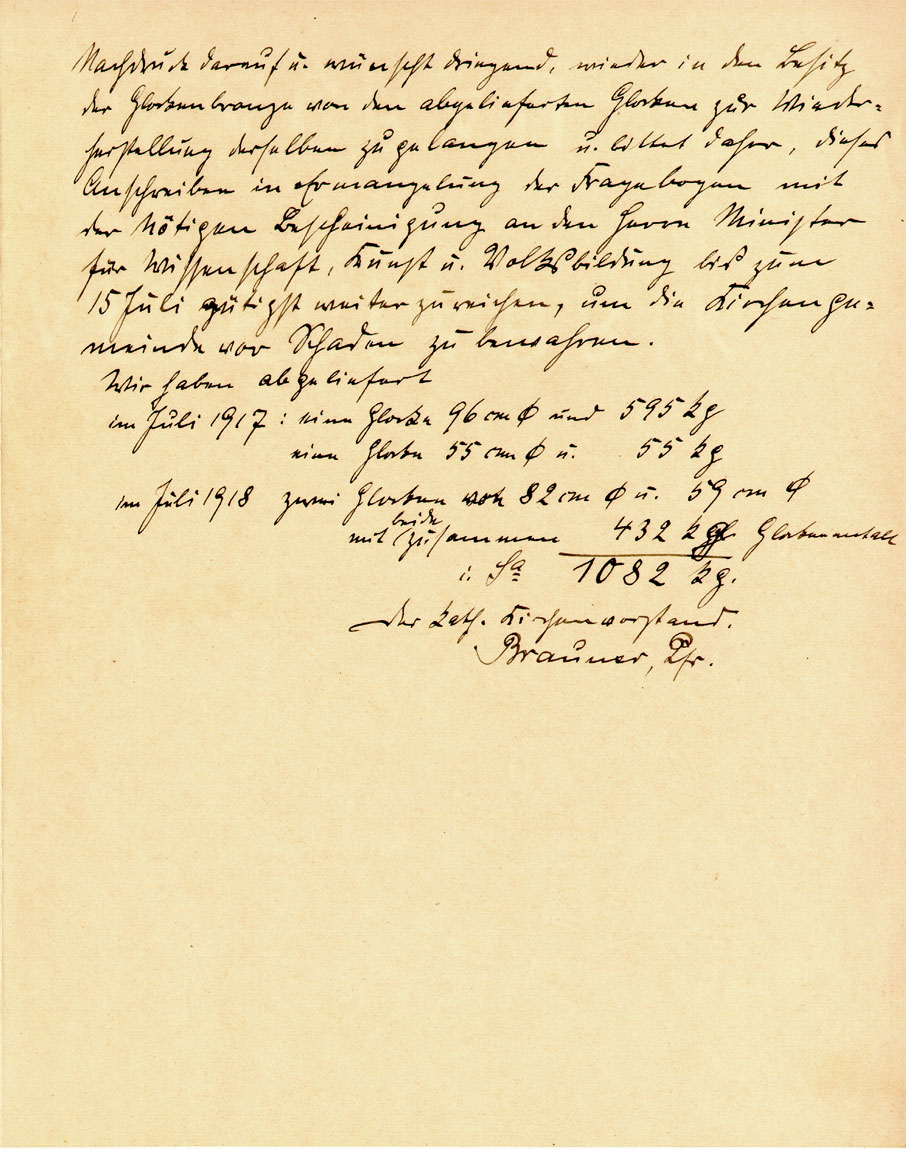 Nachdruck darauf u. wünscht dringend, wieder in den Besitz
der Glockenbronze von den abgelieferten Glocken zur Wieder-
herstellung derselben zu gelangen u. bittet daher, dieses
Anschreiben in Ermangelung der Fragebogen mit
der nötigen Bescheinigung an den Herrn Minister
für Wissenschaft, Kunst u. Volksbildung bis zum
15 Juli gütigst weiterzureichen, um die Kirchenge-
meinde vor Schaden zu bewahren.
Wir haben abgeliefert
im Juli 1917 : eine Glocke 96 cm ∅ und 595 kg
eine Glocke 55 cm ∅ u. 55 kg
im Juli 1918 zwei Glocken von 82 cm ∅ u. 59 cm ∅
beide
mit zusammen 432 kg Glockenmetall
i. Sa 1082 kg.
Der kath. Kirchenvorstand.
Brauner, Pfr.